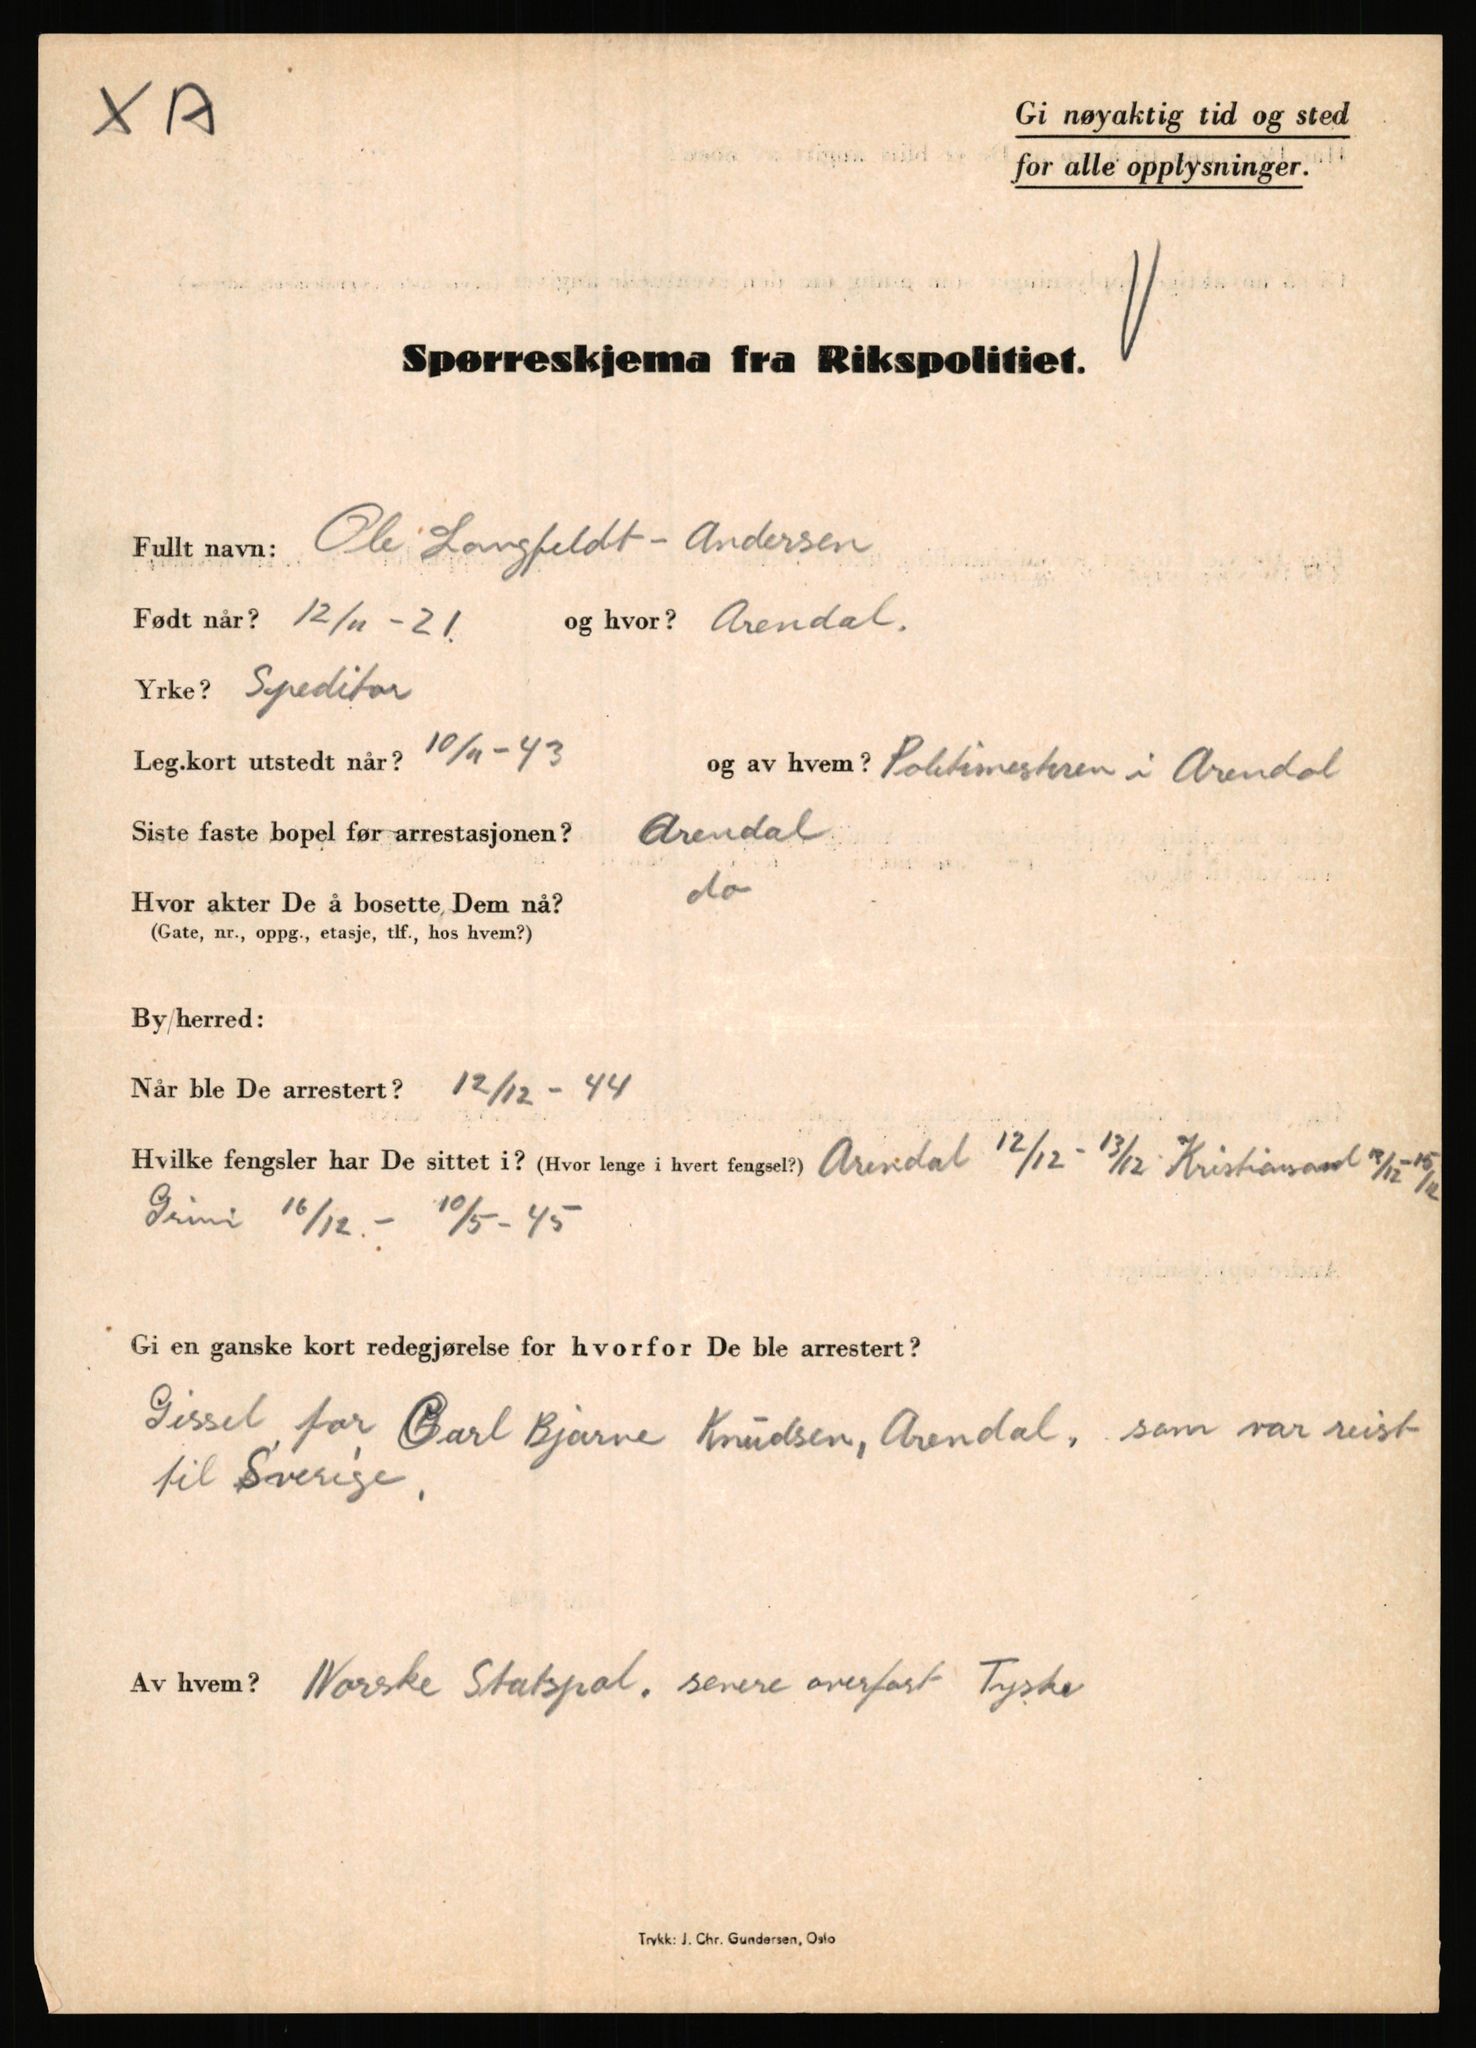 X A
Gi nøyaktig tid og sted
for alle opplysninger.
Spørreskjema fra Rikspolitiet.
Fullt navn: Ole Langfeldt - Andersen
Født når? 12/11 - 21. og hvor? Arendal.
Yrke? Speditør
Leg.kort utstedt når? 10/11 - 43 og av hvem? Politimesteren i Arendal
Siste faste bopel før arrestasjonen? Arendal
Hvor akter De å bosette Dem nå? do
(Gate, nr., oppg., etasje, tlf., hos hvem?)
By/herred:
Når ble De arrestert? 12/12 - 44
Hvilke fengsler har De sittet i? (Hvor lenge i hvert fengsel?) Arendal 12/12 - 13/12 Kristiansand 13/12 - 15/12
Grini 16/12 - 10/5 - 45
Gi en ganske kort redegjørelse for hvorfor De ble arrestert?
Gissel for Carl Bjarne Knudsen, Arendal, som var reist
til Sverige.
Av hvem? Norske Statspol. senere overført Tyske
Trykk: J. Chr. Gundersen, Oslo